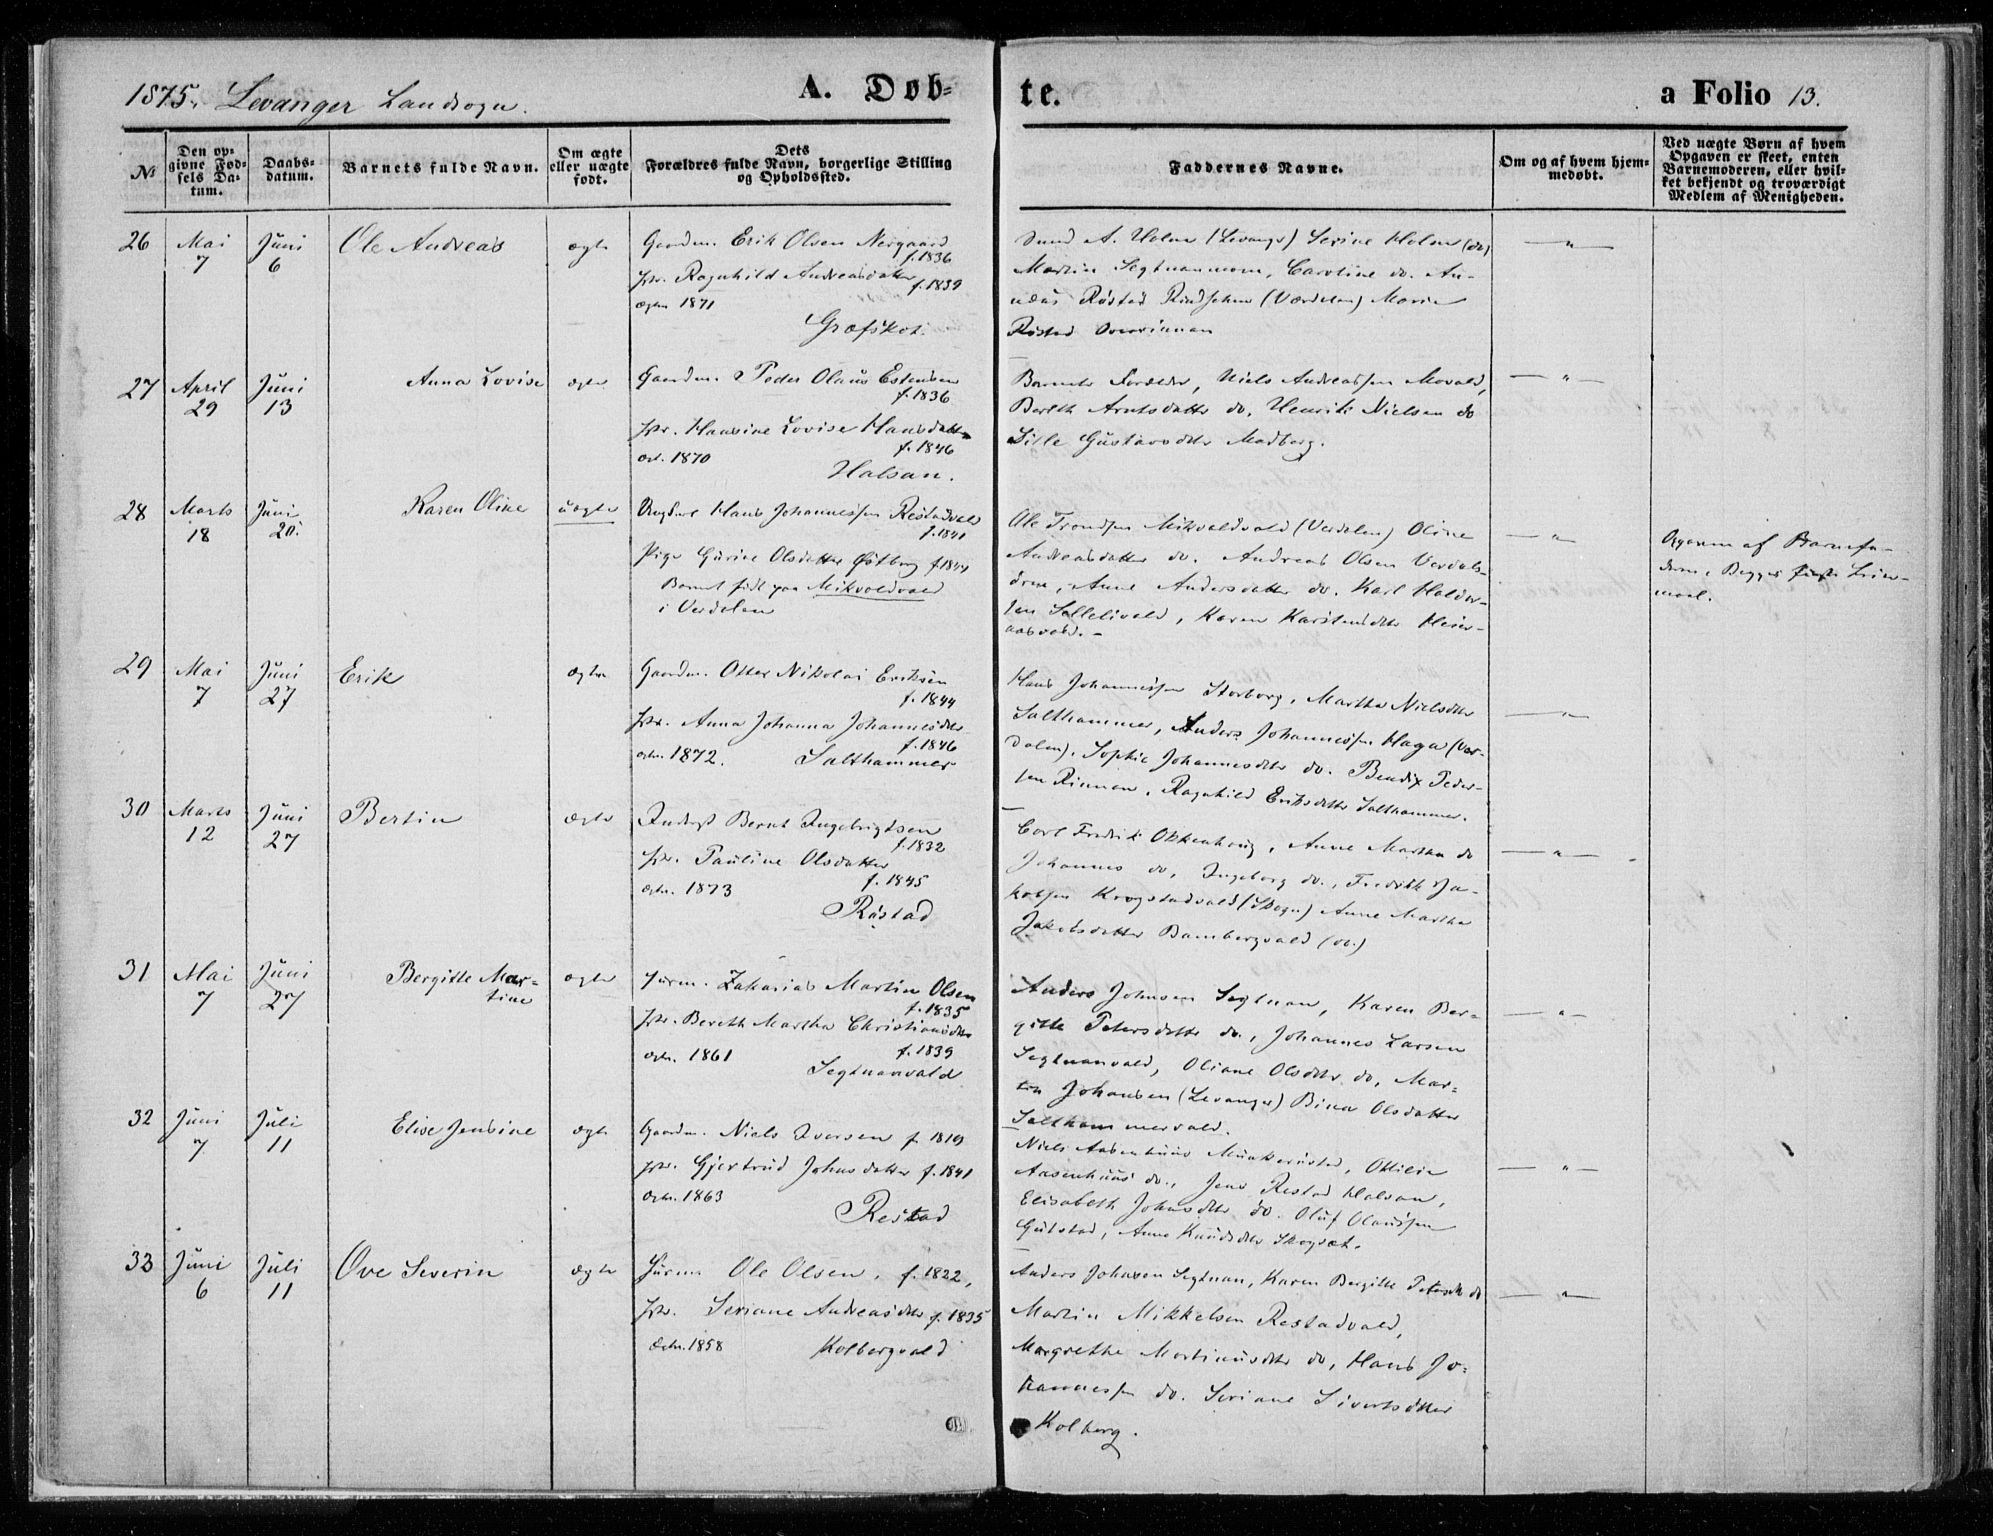 1875. Levanger Landsogn.
A. Døb=
te.
a Folio 13.
№
Den op=
givne Fød=
sels Da=
tum.
Daabs=
datum.
Barnets fulde Navn.
Om ægte
eller uægte
født.
Dets
Forældres fulde Navn, borgerlige Stilling
og Opholdssted.
Faddernes Navne.
Om og af hvem hjem=
medøbt.
Ved uægte Børn af hvem
Opgaven er skeet, enten
Barnemoderen, eller hvil=
ket bekjendt og troværdigt
Medlem af Menigheden.
26 Mai 7 Juni 6 Ole Andreas ægte
Gaardm. Erik Olsen Nergaard
f. 1836
Ragnhild Andreasdatter
f. 1839
1871
A. Holme (Levanger) Serine Holme (do)
Martin Segtnanmoen, Caroline do. An-
Røstad (Værdalen) Marie
Røstad
— " —
27 April 29 Juni 13 Anna Lovise ægte
Gaardm. Peder Olaus Estensen
f. 1836
Hansine Lovise Hansdatter
f. 1846
1870 Halsan.
Barnets Forældre, Niels Andreassen Movald,
Bereth Arntsdatter do, Henrik Nielsen do
Gustavsdtr Madberg.
— " —
28 Marts 18 Juni 20. Karen Oline uægte
Ungkarl Hans Johannessen Restadvald
f. 1841
Pige Gurine Olsdatter Østborg f. 1844
Barnet født paa Mikvoldvald
i Verdalen
Ole Trondsen Mikvoldvald (Verdalen) Oline
Andreasdatter do. Andreas Olsen Verdals-
øren, Anne Andersdatter do. Karl Haldor-
sen Sellelivald, Karen Karstensdtr Heier-
aasvald. -
— " —
Opgaven af Barnefa-
deren, Begges første Leier-
maal.
29 Mai 7 Juni 27 Erik ægte
Gaardm. Otter Nikolai Eriksen
f. 1844
Anna Johanna Johannesdtr
f. 1846
1872. Salthammer
Hans Johannessen Storborg, Martha Nielsdtr
Salthammer, Anders Johannessen Haga (Ver-
dalen), Sophie Johannesdtr do. Bendix Peder-
sen Rinnan, Ragnhild Eriksdatter Salthammer.
— " —
30 Marts 12 Juni 27 Bertin ægte
Inderst Bernt Ingebrigtsen
f. 1832
Pauline Olsdatter
f. 1845
1873 Røstad
Carl Fredrik Okkenhaug, Anne Martha do
Johannes do, Ingeborg do., Fredrik Ja-
kobsen Krogstadvald (Skogn) Anne Martha
Jakobsdatter Bambergvald (do.)
— " —
31 Mai 7 Juni 27 Bergitte Mar=
tine ægte
Zakarias Martin Olsen
f. 1835
Bereth Martha Christiansdtr
f. 1839
1861
Segtnanvald
Anders Johnsen Segtnan, Karen Ber-
gitte Petersdatter do., Johannes Larsen
Segtnanvald, Oliane Olsdtr do, Mar=
tin Johansen (Levanger) Bina Olsdatter
Salthammervald.
— " —
32 Juni 7 Juli 11 Elise Jensine ægte
Gaardm. Niels Iversen f. 1819
Gjertrud Johnsdatter f. 1841
1863
Restad
Niels Aasenhuus Munkerøstad, Ottilie
Aasenhuus do., Jens Restad Halsan,
Elisabeth Johnsdtr do. Oluf Olaussen
Gulstad, Anne Knudsdtr
— " —
33 Juni 6 Juli 11 Ove Severin ægte
Ole Olsen, f. 1822,
Seriane Andreasdtr f. 1835
1858 Kolbergvald
Anders Johnsen Segtnan, Karen Bergitte do
Martin Mikkelsen Restadvald,
Margrethe Martinusdtr do, Hans Jo=
hannessen do. Seriane Sivertsdtter
Kolberg.
— " —